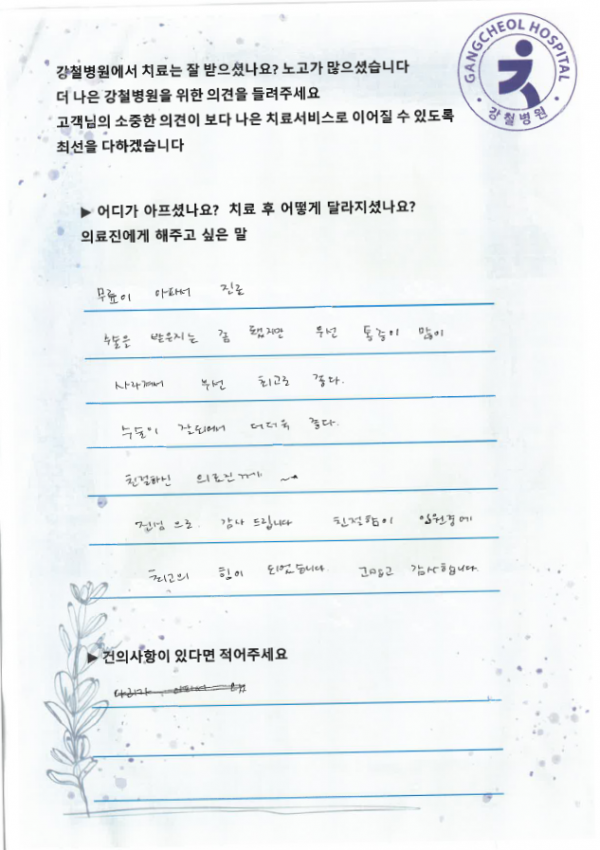 GANGCHEOL HOSPITAL
강철병원
강철병원에서 치료는 잘 받으셨나요? 노고가 많으셨습니다
더 나은 강철병원을 위한 의견을 들려주세요
고객님의 소중한 의견이 보다 나은 치료서비스로 이어질 수 있도록
최선을 다하겠습니다
▶ 어디가 아프셨나요? 치료 후 어떻게 달라지셨나요?
의료진에게 해주고 싶은 말
무릎이 아파서 진료
수술은 받은지는 좀 됐지만 우선 통증이 많이
사라져서 우선 최고로 좋다.
수술이 잘되어서 더더욱 좋다.
친절하신 의료진께
진심으로 감사 드립니다 친절함이
최고의 힘이 되었습니다. 고맙고 감사합니다.
▶ 건의사항이 있다면 적어주세요